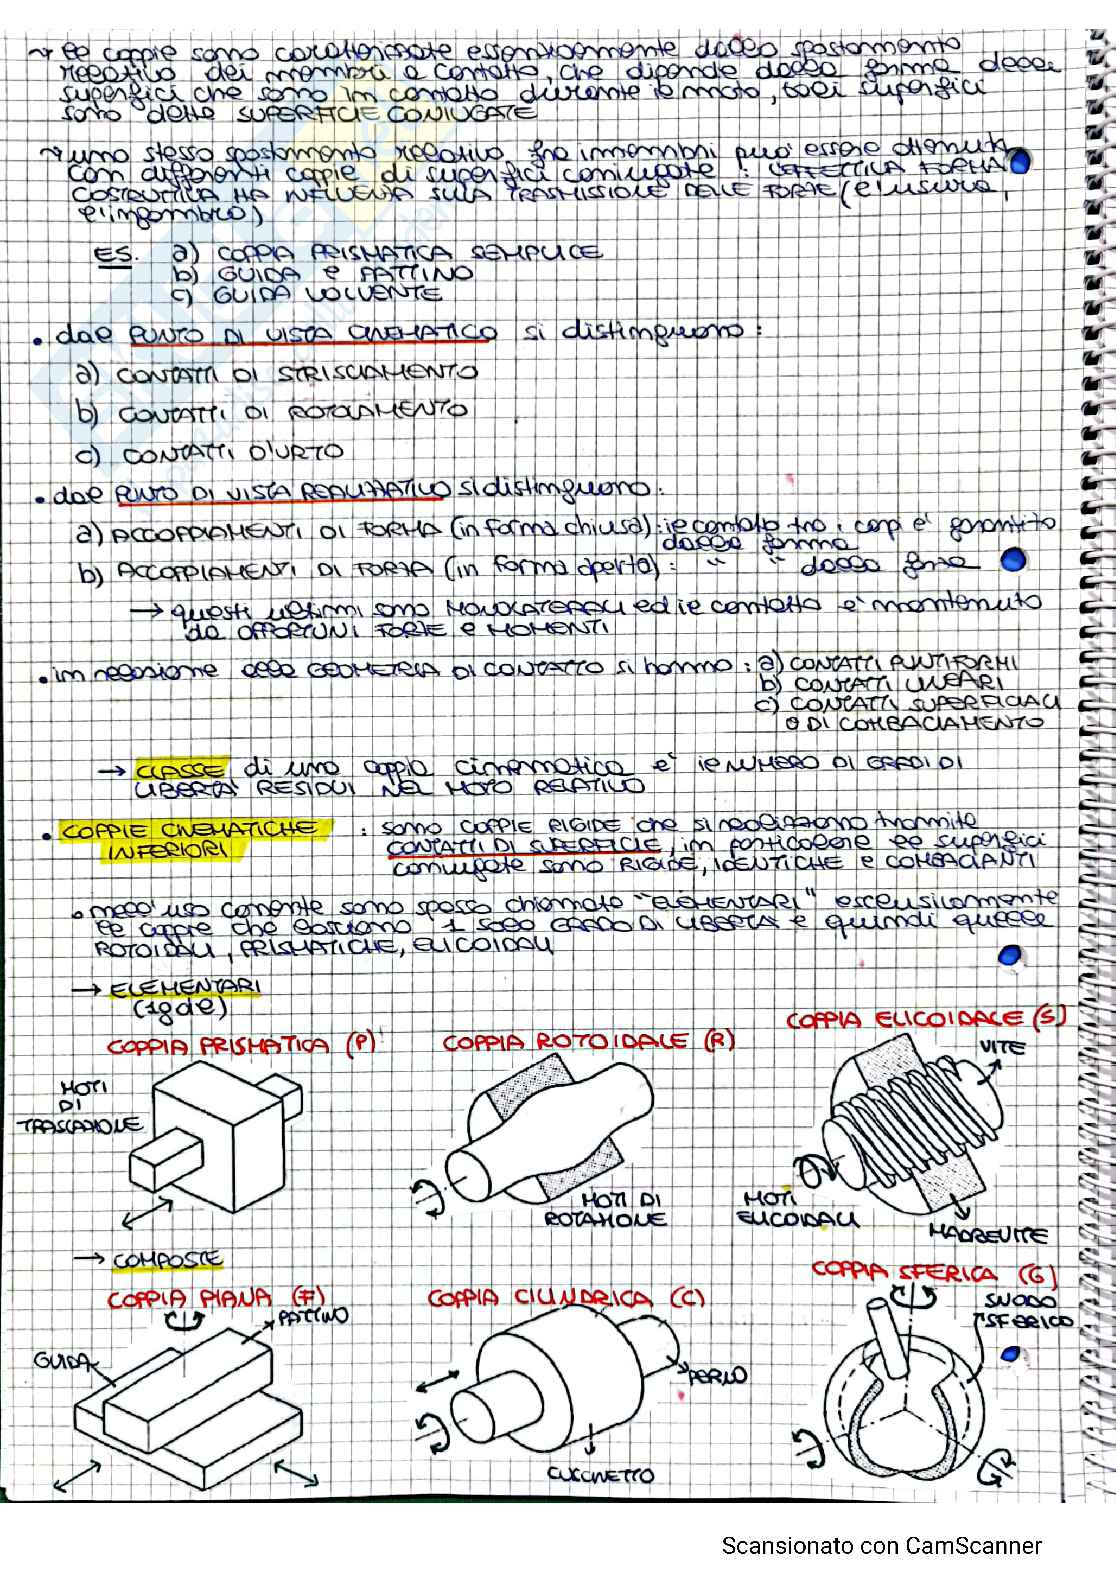 → le coppie sono caratterizzate essenzialmente dallo spostamento
relativo dei membri a contatto, che dipende dalla forma delle
superfici che sono in contatto durante il moto, tali superfici
sono dette SUPERFICIE CONIUGATE
→ uno stesso spostamento relativo fra i membri può essere ottenuto
con differenti coppie di superfici coniugate : L'EFFETTIVA FORMA
COSTRUTTIVA HA INFLUENZA SULLA TRASMISSIONE DELLE FORZE (e l'usura,
e l'ingombro)
ES. a) COPPIA PRISMATICA SEMPLICE
b) GUIDA e PATTINO
c) GUIDA VOLVENTE
• dal PUNTO DI VISTA CINEMATICO si distinguono :
a) CONTATTI DI STRISCIAMENTO
b) CONTATTI DI ROTOLAMENTO
c) CONTATTI D'URTO
• dal PUNTO DI VISTA REALIZZATIVO si distinguono :
a) ACCOPPIAMENTI DI FORMA (in forma chiusa) : il contatto tra i corpi è garantito
dalla forma
b) ACCOPPIAMENTI DI FORZA (in forma aperta) : " " dalla forza
→ questi ultimi sono MONOLATERALI ed il contatto è mantenuto
da OPPORTUNI FORZE e MOMENTI
• in relazione alla GEOMETRIA DI CONTATTO si hanno : a) CONTATTI PUNTIFORMI
b) CONTATTI LINEARI
c) CONTATTI SUPERFICIALI
O DI COMBACIAMENTO
→ CLASSE di una coppia cinematica è il NUMERO DI GRADI DI
LIBERTA' RESIDUI NEL MOTO RELATIVO
• COPPIE CINEMATICHE : sono COPPIE RIGIDE che si realizzano tramite
INFERIORI CONTATTI DI SUPERFICIE, in particolare le superfici
coniugate sono RIGIDE, IDENTICHE e COMBACIANTI
• nell'uso corrente sono spesso chiamate "ELEMENTARI" esclusivamente
le coppie che lasciano 1 solo GRADO DI LIBERTA' e quindi quelle
ROTOIDALI, PRISMATICHE, ELICOIDALI
→ ELEMENTARI
(1gdl)
COPPIA PRISMATICA (P) COPPIA ROTOIDALE (R) COPPIA ELICOIDALE (S)
VITE
MOTI
DI
TRASLAZIONE
MOTI DI
ROTAZIONE
MOTI
ELICOIDALI
MADREVITE
→ COMPOSTE
COPPIA PIANA (F) COPPIA CILINDRICA (C) COPPIA SFERICA (G)
PATTINO
GUIDA
PERNO
CUSCINETTO
SNODO
SFERICO
Scansionato con CamScanner